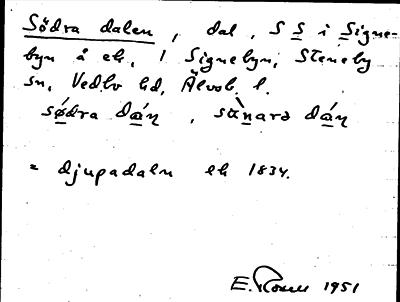 Södra dalen, dal, S S i Signe-
byn å ek, 1 Signebyn, Steneby
sn, Vedbo hd, Älvsb. l.
sǿdra dán, sùnarə dán
= djupadaln ek 1834.
E. 1951